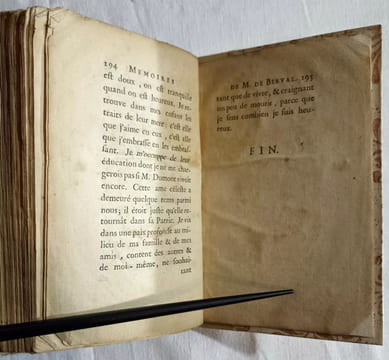 194 MEMOIRES
est doux, on est tranquille
quand on est heureux. Je re-
trouve dans mes enfans les
traits de leur mere: c'est elle
que j'aime en eux, c'est elle
que j'embrasse en les embras-
sant. Je m'occupe de leur
éducation dont je ne me char-
gerois pas si M. Dumont vivoit
encore. Cette ame céleste a
demeuré quelque tems parmi
nous; il étoit juste qu'elle re-
tournât dans sa Patrie. Je vis
dans une paix profonde au mi-
lieu de ma famille & de mes
amis, content des autres &
de moi-même, ne souhai-
tant
DE M. DE BERVAL. 195
tant que de vivre, & craignant
un peu de mourir, parce que
je sens combien je suis heu-
reux.
FIN.